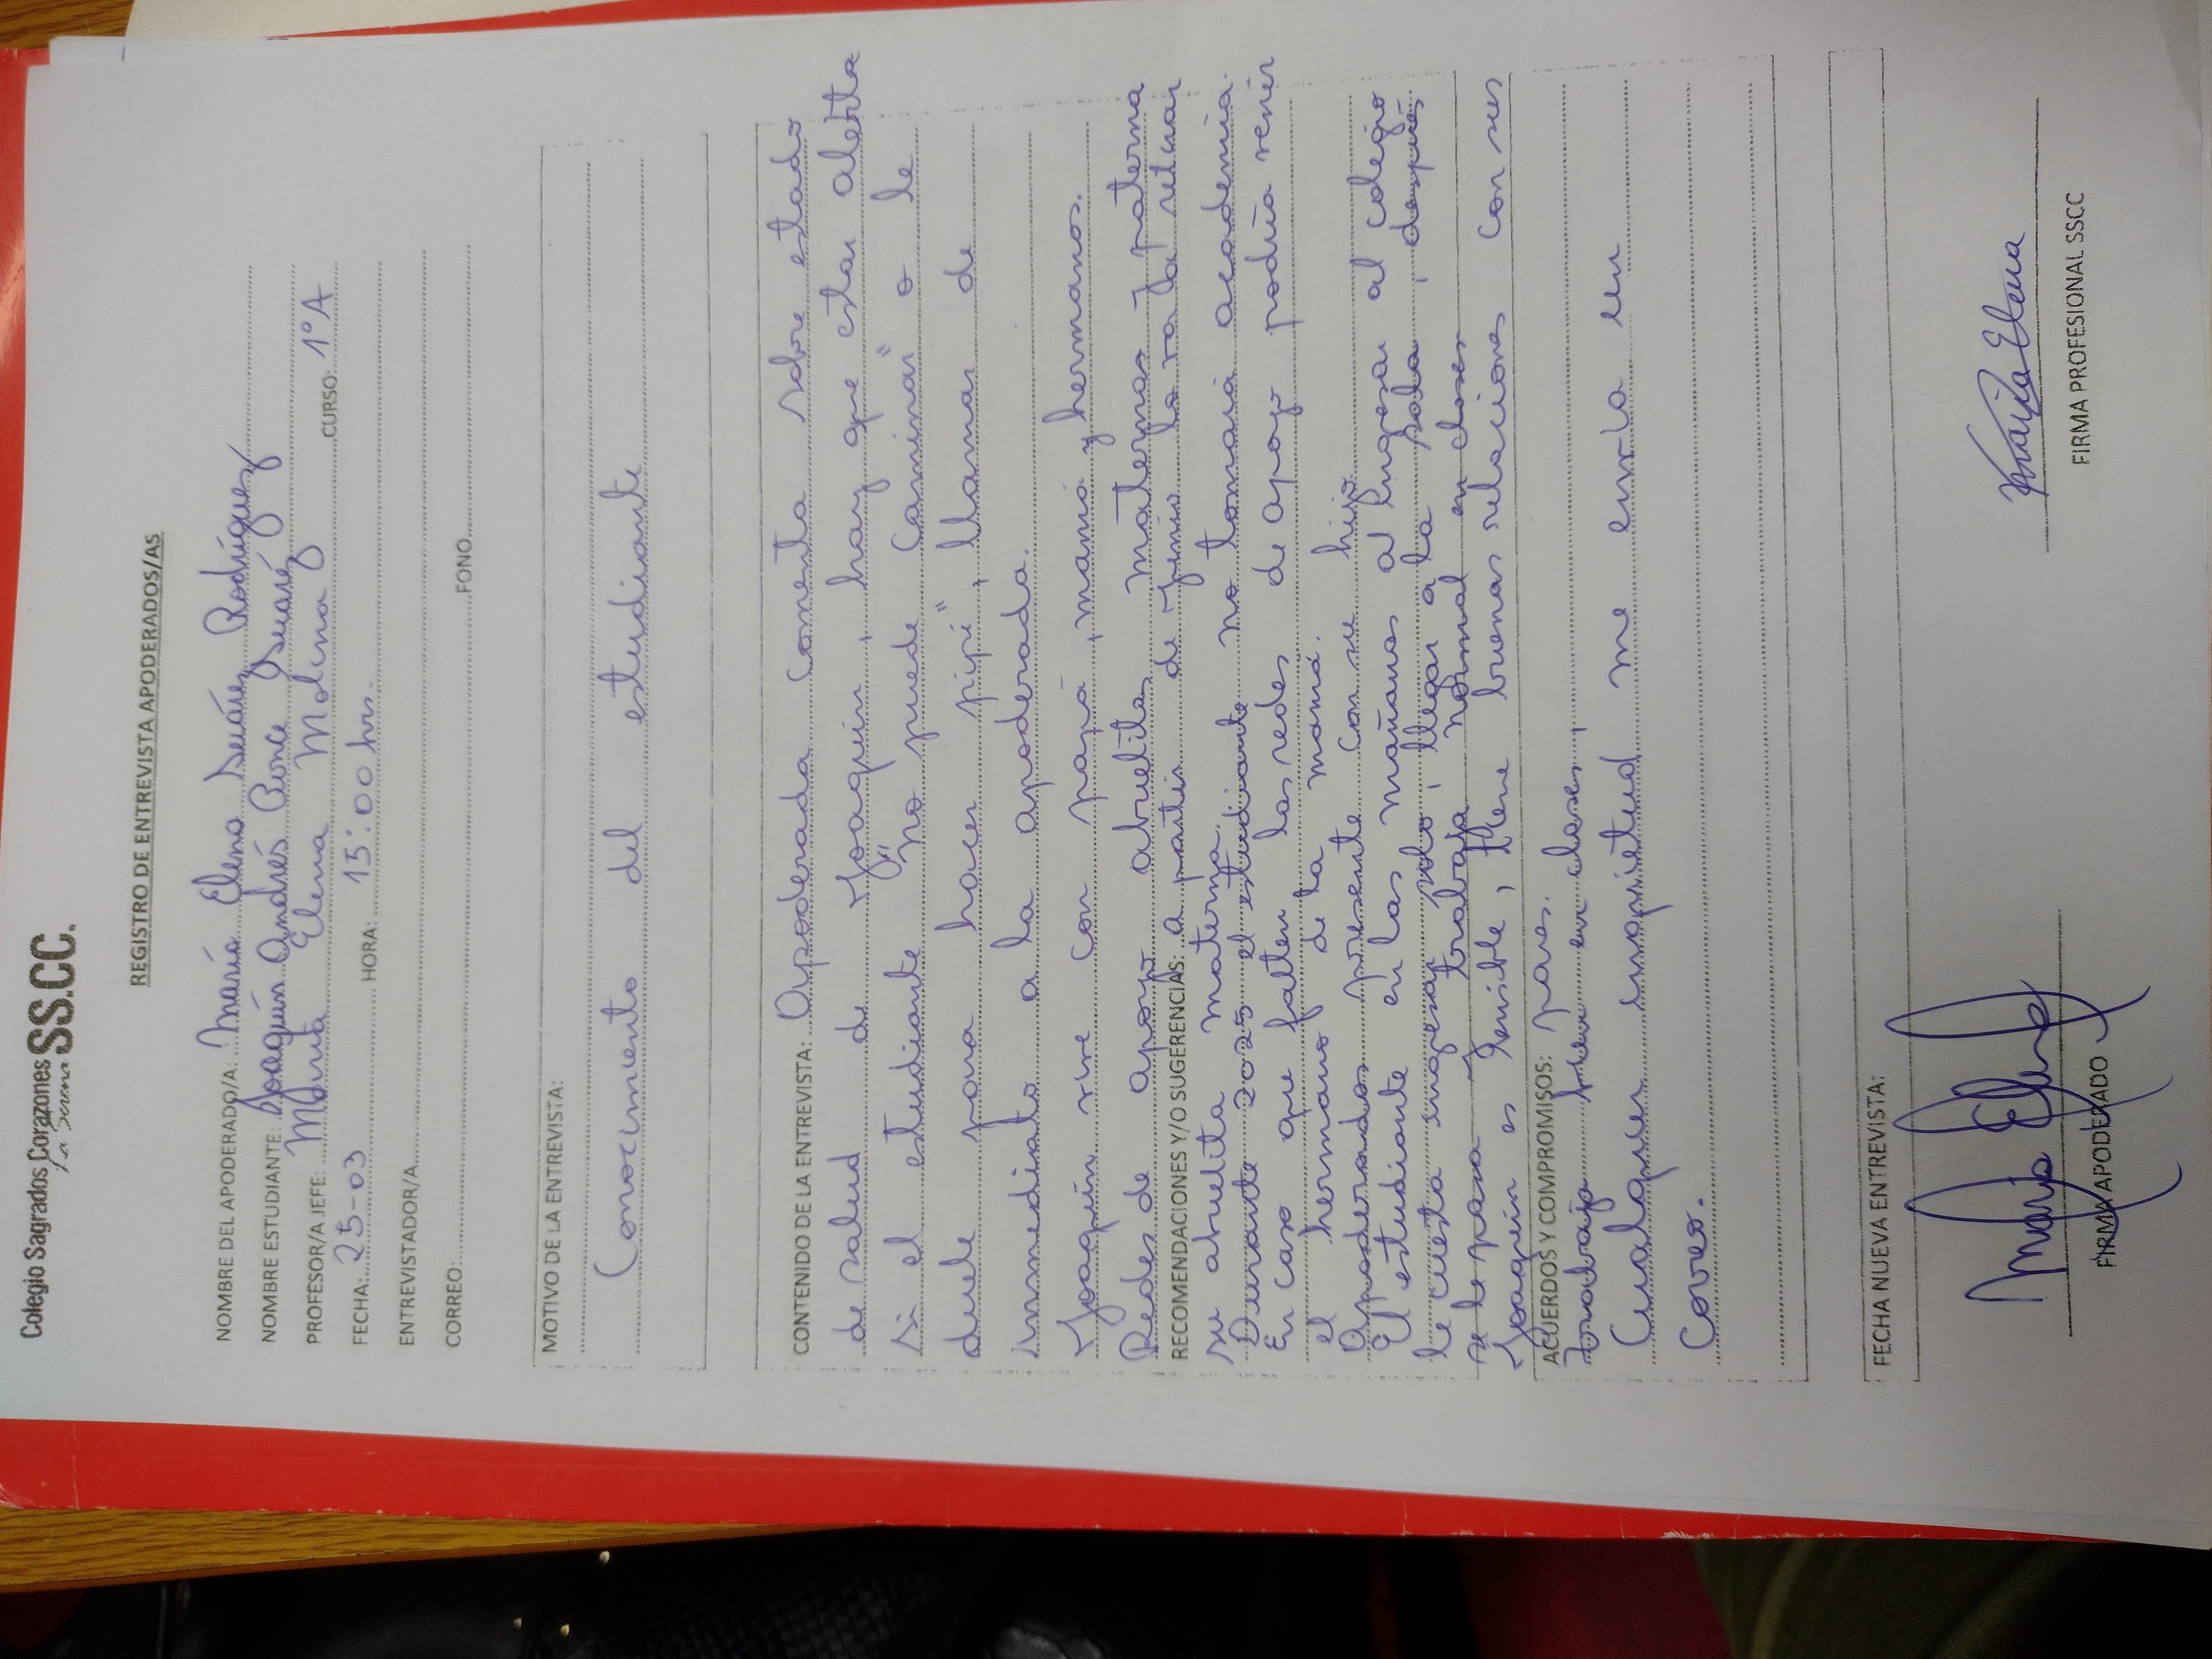 Colegio Sagrados Corazones SS.CC.
La Serena
REGISTRO DE ENTREVISTA APODERADOS/AS
NOMBRE DEL APODERADO/A: María Elena Suárez Rodríguez
NOMBRE ESTUDIANTE: Joaquín Andrés Ponce Suárez
PROFESOR/A JEFE: Mirta Elena Molina CURSO: 1°A
FECHA: 25-03 HORA: 15:00 hrs.
ENTREVISTADOR/A
CORREO: FONO
MOTIVO DE LA ENTREVISTA:
Conocimiento del estudiante
CONTENIDO DE LA ENTREVISTA: Apoderada comenta sobre estado
de salud de Joaquín, hay que estar alerta
si el estudiante "no puede caminar" o le
duele para hacer pipí", llamar de
inmediato a la apoderada.
Joaquín vive con papá, mamá y hermanos.
Redes de apoyo abuelitas maternas y paterna
RECOMENDACIONES Y/O SUGERENCIAS: a partir de junio lo va a retirar
su abuelita materna.
Durante 2025 el estudiante no tomará academia.
En caso que falten las redes de apoyo podría venir
el hermano de la mamá.
Apoderados presente con su hijo.
El estudiante en las mañanas al ingresar al colegio
le cuesta ingresar solo, llegar a la sala, después
se le pasa y trabaja normal en clases
Joaquín es sensible, tiene buenas relaciones con sus
ACUERDOS Y COMPROMISOS: pares.
trabaja bien en clases,
Cualquier inquietud me envía un
correo.
FECHA NUEVA ENTREVISTA:
María Elena
FIRMA APODERADO
FIRMA PROFESIONAL SSCC